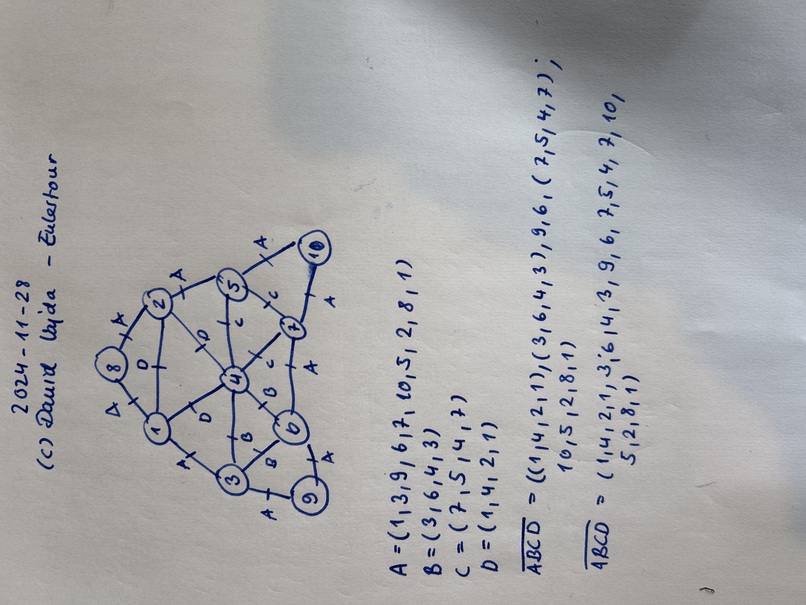 2024-11-28
(c) David Vajda - Eulertour
8
A
A
D
1
2
A
A
D
D
3
4
5
B
C
A
A
B
B
C
C
9
6
7
10
A
A
A
A = (1,3,9,6,7,10,5,2,8,1)
B = (3,6,4,3)
C = (7,5,4,7)
D = (1,4,2,1)
ABCD = ((1,4,2,1),(3,6,4,3),9,6,(7,5,4,7);
10,5,2,8,1)
ABCD = (1,4,2,1,3,6,4,3,9,6,7,5,4,7,10,
5,2,8,1)